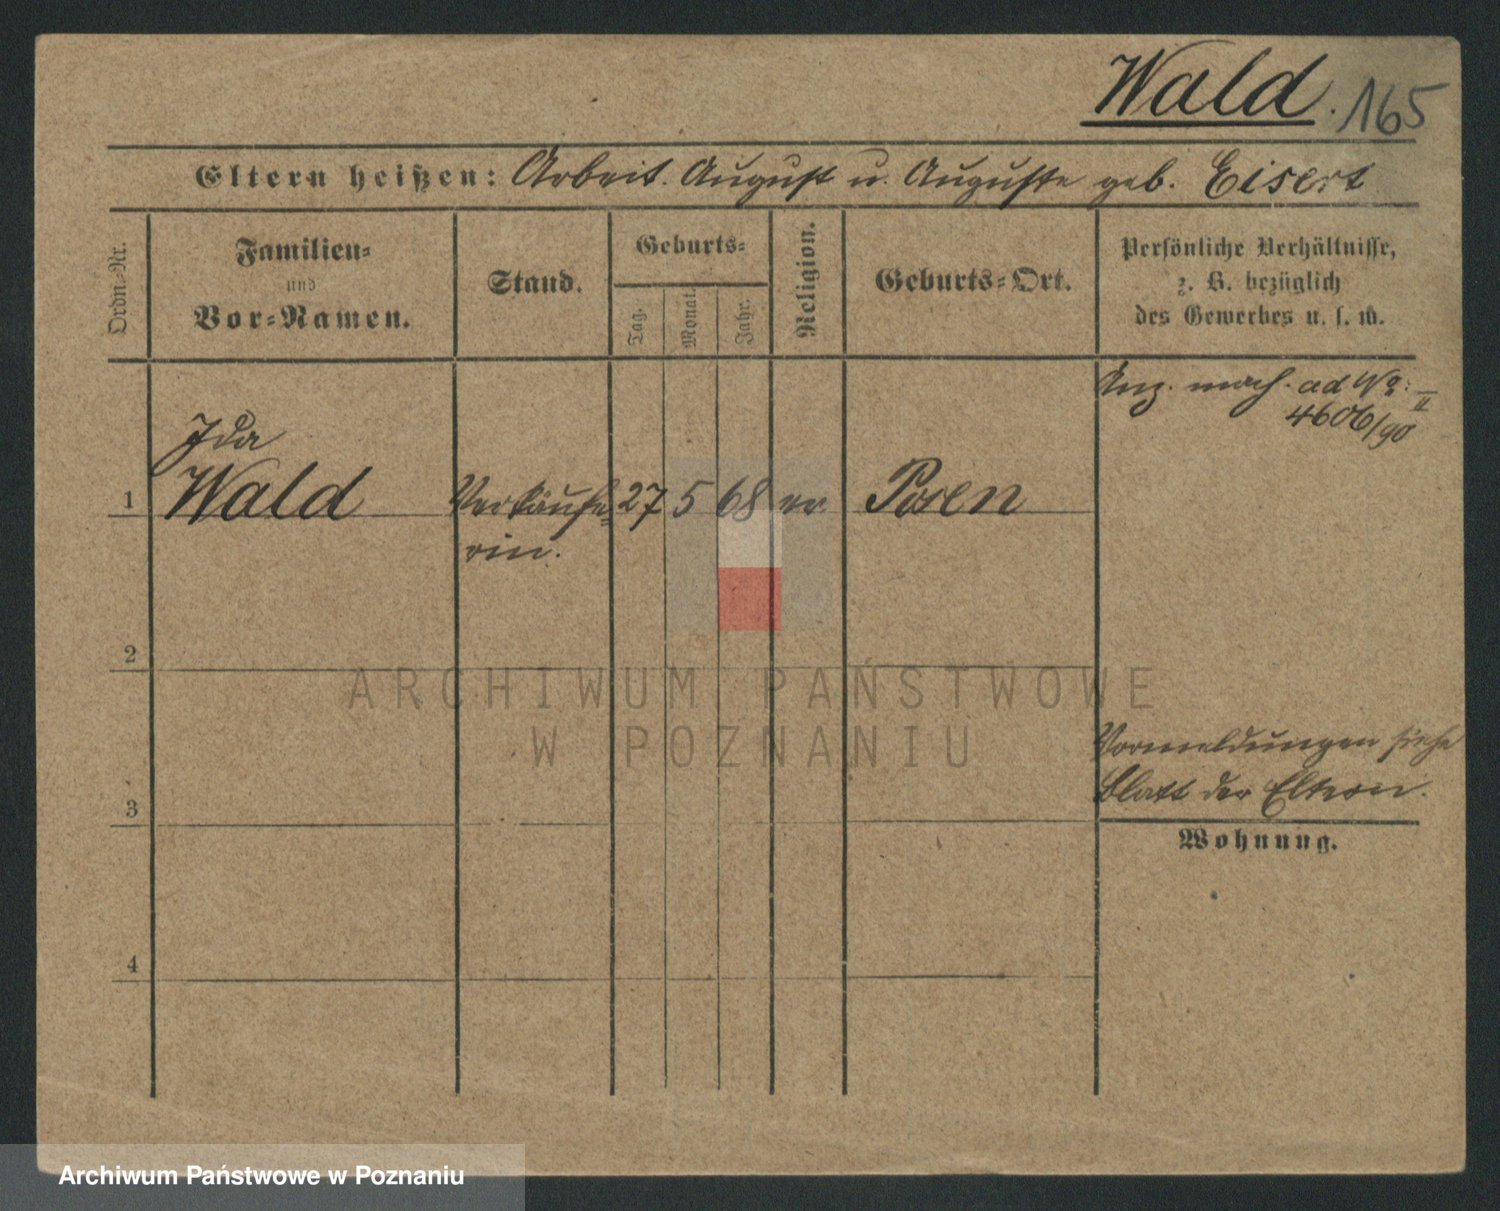 Wald. 165
Eltern heißen: Arbeit. August u. Auguste geb. Eisert
Ordn.-Nr.
Familien-
und
Vor-Namen.
Stand.
Geburts-
Tag.
Monat.
Jahr.
Religion.
Geburts-Ort.
Persönliche Verhältnisse,
z. B. bezüglich
des Gewerbes u. s. w.
Anz. mach. ad No: II
4606/90
Ida
1 Wald Verkäufe- 27 5 68 ev Posen
rin.
2
ARCHIWUM PAŃSTWOWE
W POZNANIU
Vormeldungen siehe
Blatt der Eltern.
3
Wohnung.
4
Archiwum Państwowe w Poznaniu